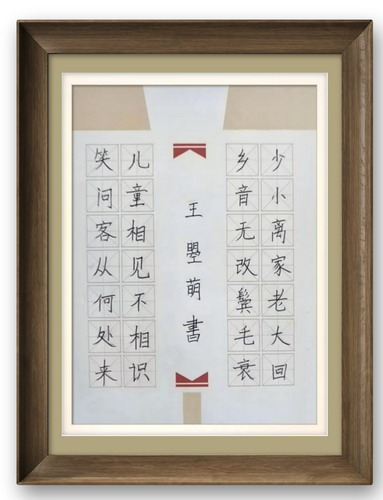 少小离家老大回
乡音无改鬓毛衰
王 萌書
儿童相见不相识
笑问客从何处来